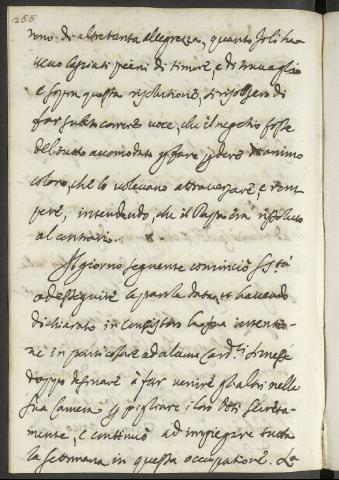 266
reno di altretanta allegrezza, quanto gl'ha-
ueuo lasciati pieni di timore, e di trauaglio
e sopra questa risolutione, si risolsero di
far subito correre voce, che il negotio fosse
del tutto accomodato p far perdere di animo
coloro, che lo voleuano attrauersare, e rom-
pere, intendendo, che il Papa era risoluto
al contrario.
Il giorno seguente cominciò S. Stà
ad esseguire la parola data, et hauendo
dichiarato in concistoro la sua intentio-
ne in particolare ad alcuni Card.li si messe
doppo desinare à far venire gli altri nelle
sua Camera p pigliare i loro Voti secreta-
mente, e continuò ad impiegare tutta
la settimana in questa occupatione. La